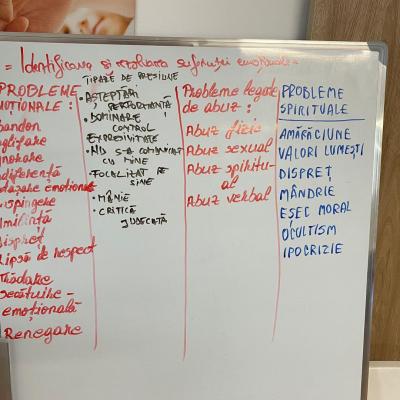 = Identificarea și rezolvarea suferinței emoționale =
PROBLEME
EMOȚIONALE :
abandon
neglijare
ignorare
indiferență
respingere
umilință
dispreț
Lipsă de respect
Trădare
secătuire -
emoțională
Renegare
TIPARE DE PRESIUNE
• AȘTEPTĂRI /
PERFORMANȚĂ
• DOMINARE /
CONTROL
EXPRESIVITATE
• NU S-A COMUNICAT
CU MINE
• FOCALIZAT PE
SINE
• MÂNIE
• CRITICĂ
JUDECATĂ
Probleme legate
de abuz :
Abuz fizic
Abuz sexual
Abuz spiritu-
al
Abuz verbal
PROBLEME
SPIRITUALE
AMĂRĂCIUNE
VALORI LUMEȘTI
DISPREȚ
MÂNDRIE
EȘEC MORAL
OCULTISM
IPOCRIZIE